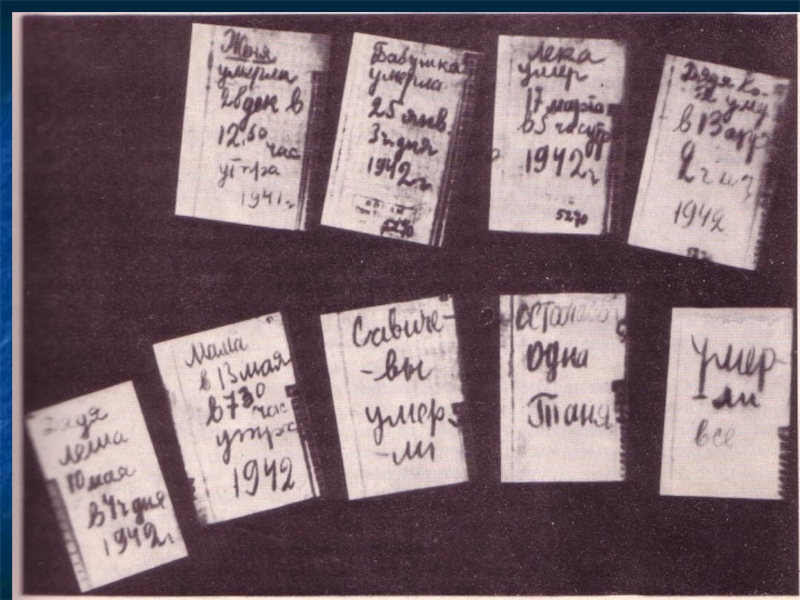 Женя
умерла
28 дек в
12.30
час
утра
1941 г
Бабушка
умерла
25 янв.
3 ч. дня
1942 г.
Лека
умер
17 марта
в 5 час утр
1942 г
5270
Дядя
в 13 апр
2 ч
1942
Дядя
Леша
10 мая
в 4 ч дня
1942 г
Мама
в 13 мая
в 7.30
час
утра
1942
Савиче-
-вы
умер-
-ли
осталась
одна
Таня
умер-
-ли
все